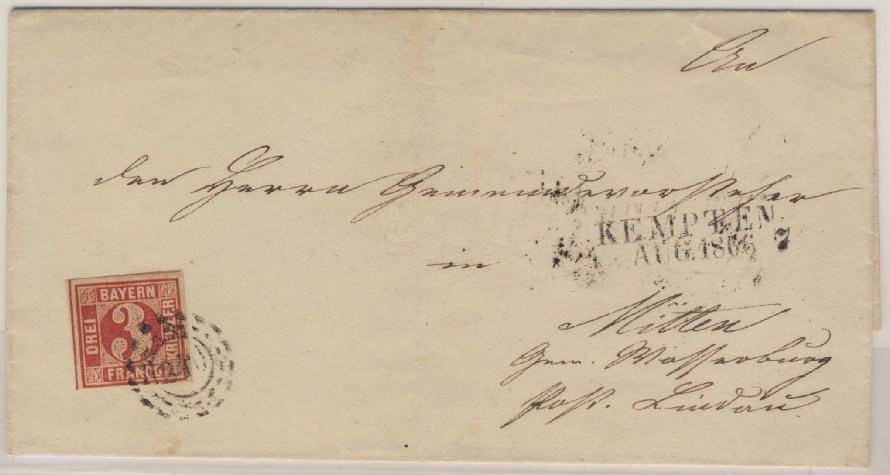 An
den Herrn Gemeindevorsteher
KEMPTEN
AUG. 1866 7
in
Mitten
Gem. Wasserburg
Post. Lindau
BAYERN
DREI
3
KREUZER
FRANCO